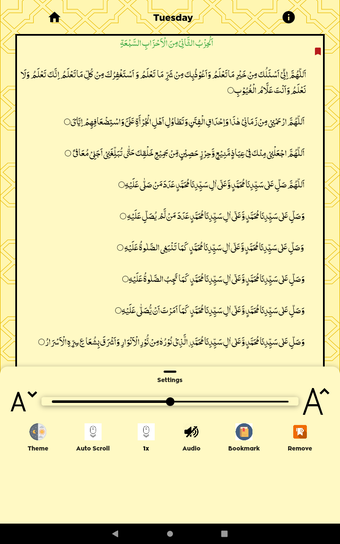 Tuesday
اَلْحِزْبُ الثَّانِيْ مِنَ الْاَحْزَابِ السَّبْعَةِ
اَللّٰهُمَّ اِنِّيْ اَسْئَلُكَ مِنْ خَيْرِ مَا تَعْلَمُ وَ اَعُوْذُ بِكَ مِنْ شَرِّ مَا تَعْلَمُ وَ اَسْتَغْفِرُكَ مِنْ كُلِّ مَا تَعْلَمُ اِنَّكَ تَعْلَمُ وَلَا
نَعْلَمُ وَ اَنْتَ عَلَّامُ الْغُيُوْبِ
اَللّٰهُمَّ ارْحَمْنِيْ مِنْ زَمَانِيْ هٰذَا وَ اِحْدَاقِ الْفِتَنِ وَ تَطَاوُلِ اَهْلِ الْجُرْاَةِ عَلَيَّ وَ اسْتِضْعَافِهِمْ اِيَّايَ
اَللّٰهُمَّ اجْعَلْنِيْ مِنْكَ فِيْ عِيَاذٍ مَّنِيْعٍ وَّ حِرْزٍ حَصِيْنٍ مِنْ جَمِيْعِ خَلْقِكَ حَتّٰى تُبَلِّغَنِيْ اَجَلِيْ مُعَافًى
اَللّٰهُمَّ صَلِّ عَلٰى سَيِّدِنَا مُحَمَّدٍ وَّ عَلٰى اٰلِ سَيِّدِنَا مُحَمَّدٍ عَدَدَ مَنْ صَلّٰى عَلَيْهِ
وَ صَلِّ عَلٰى سَيِّدِنَا مُحَمَّدٍ وَّ عَلٰى اٰلِ سَيِّدِنَا مُحَمَّدٍ عَدَدَ مَنْ لَّمْ يُصَلِّ عَلَيْهِ
وَ صَلِّ عَلٰى سَيِّدِنَا مُحَمَّدٍ وَّ عَلٰى اٰلِ سَيِّدِنَا مُحَمَّدٍ كَمَا تَنْۢبَغِي الصَّلٰوةُ عَلَيْهِ
وَ صَلِّ عَلٰى سَيِّدِنَا مُحَمَّدٍ وَّ عَلٰى اٰلِ سَيِّدِنَا مُحَمَّدٍ كَمَا تَجِبُ الصَّلٰوةُ عَلَيْهِ
وَ صَلِّ عَلٰى سَيِّدِنَا مُحَمَّدٍ وَّ عَلٰى اٰلِ سَيِّدِنَا مُحَمَّدٍ كَمَا اَمَرْتَ اَنْ يُّصَلّٰى عَلَيْهِ
وَ صَلِّ عَلٰى سَيِّدِنَا مُحَمَّدٍ وَّ عَلٰى اٰلِ سَيِّدِنَا مُحَمَّدِنِ الَّذِيْ نُوْرُهٗ مِنْ نُّوْرِ الْاَنْوَارِ وَ اَشْرَقَ بِشُعَاعِ سِرِّهِ الْاَسْرَارُ
Settings
A A
Theme Auto Scroll 1x Audio Bookmark Remove